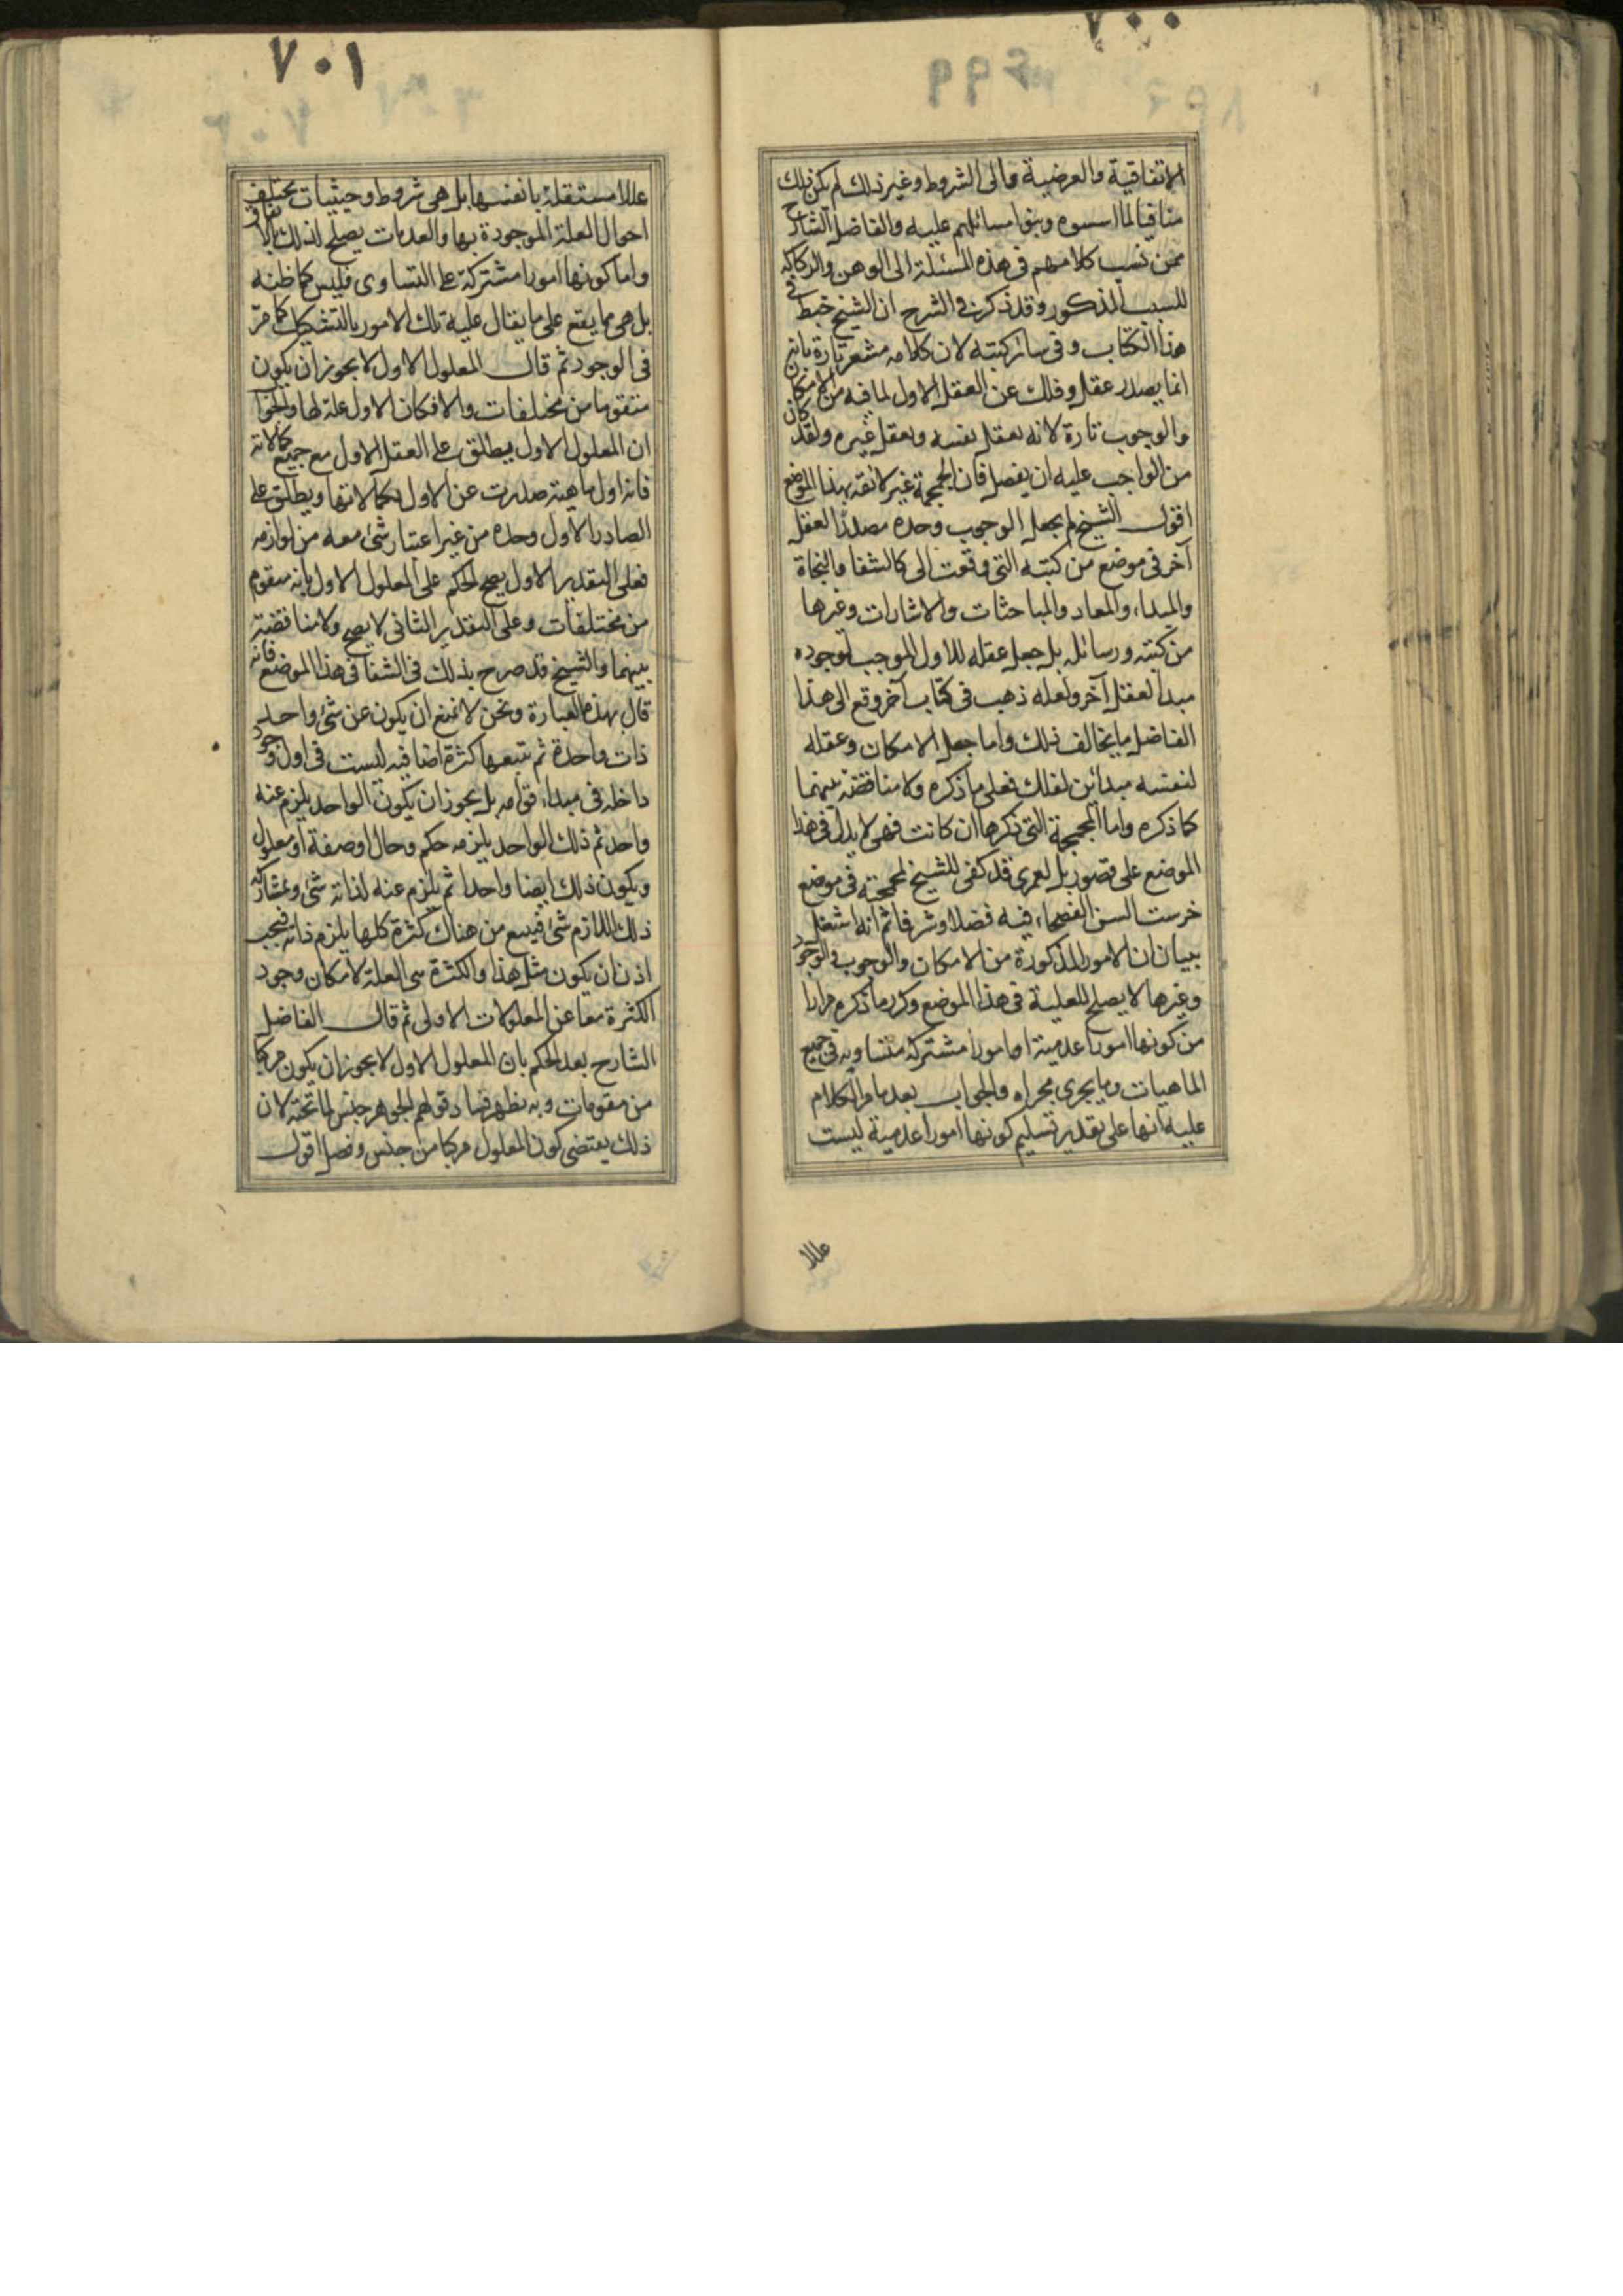 ٧٠٠
٦٩٩
الاتفاقية والعرضية والى الشروط وغير ذلك لم يكن ذلك
منافيا لما اسسوه وبنوا مسائلهم عليه والفاضل الشارح
ممن نسب كلامهم فى هذه المسئلة الى الوهن والركاكه
للسبب المذكور وقد ذكر فى الشرح ان الشيخ خبط فى
هذا الكتاب وفى سائر كتبه لان كلامه مشعر تارة بانه
انما يصدر عقل وفلك عن العقل الاول لما فيه من الامكان
والوجوب تارة لانه يعقل نفسه ويعقل غيره ولقد كان
من الواجب عليه ان يفصل فان المجمجة غير لائقه بهذا الموضع
اقول الشيخ لم يجعل الوجوب وحده مصدرا لعقل
آخر فى موضع من كتبه التى وقعت الى كالشفا والنجاة
والمبداء والمعاد والمباحثات والاشارات وغيرها
من كتبه ورسائله بل جعل عقله للاول الموجب لوجوده
مبدأ لعقل آخر ولعله ذهب فى كتاب آخر وقع الى هذا
الفاضل ما يخالف ذلك واما جعل الامكان وعقله
لنفسه مبدائن لفلك فعلى ما ذكره ولا مناقضة بينهما
كما ذكره واما المجمجة التى ذكرها ان كانت فهى لا يدل فى هذا
الموضع على قصور بل لعمرى قد كفى للشيخ لمجمجة فى موضع
خرست السن الفصحاء فيه فضلا وشرفا ثم انه اشتغل
ببيان ان الامور المذكورة من الامكان والوجوب والوجود
وغيرها لا يصلح للعلية فى هذا الموضع وكرر ما ذكره مرارا
من كونها امورا عدمية او امورا مشتركة متساويه فى جميع
الماهيات وما يجرى مجراه والجواب بعد ما مر الكلام
عليه انها على تقدير تسليم كونها امورا عدمية ليست
عللا
٧٠١
٧٠٢
عللا مستقلة بانفسها بل هى شروط وحيثيات يختلف
احوال العلة الموجودة بها والعدمات يصلح لذلك بالاتفاق
واما كونها امورا مشتركة على التساوى فليس كما ظنه
بل هى مما يقع على ما يقال عليه تلك الامور بالتشكيك كما مرّ
فى الوجود ثم قال المعلول الاول لا يجوز ان يكون
متقوما من مختلفات والا فكان الاول علة لها والجواب
ان المعلول الاول يطلق على العقل الاول مع جميع كمالاته
فانه اول ماهية صدرت عن الاول بكمالاتها ويطلق على
الصادر الاول وحده من غير اعتبار شئ معه من لوازمه
فعلى التقدير الاول يصح الحكم على المعلول الاول بانه متقوم
من مختلفات وعلى التقدير الثانى لا يصح ولا مناقضة
بينهما والشيخ قد صرح بذلك فى الشفا فى هذا الموضع فانه
قال بهذه العبارة ونحن لا نمنع ان يكون عن شئ واحد
ذات واحدة ثم يتبعها كثرة اضافيه ليست فى اول وجوده
داخله فى مبداء قوامه بل يجوز ان يكون الواحد يلزم عنه
واحد ثم ذلك الواحد يلزمه حكم وحال او صفة او معلول
ويكون ذلك ايضا واحدا ثم يلزم عنه لذاته شئ وبمشاركة
ذلك اللازم شئ فيتبع من هناك كثرة كلها يلزم ذاته فيجب
اذن ان يكون مثل هذا والكثرة هى العلة لامكان وجود
الكثرة معا عن المعلولات الاولى ثم قال الفاضل
الشارح بعد الحكم بان المعلول الاول لا يجوز ان يكون مركبا
من مقومات وبه يظهر فساد قولهم الجوهر جنس لما تحته لان
ذلك يقتضى كون المعلول مركبا من جنس وفصل اقول